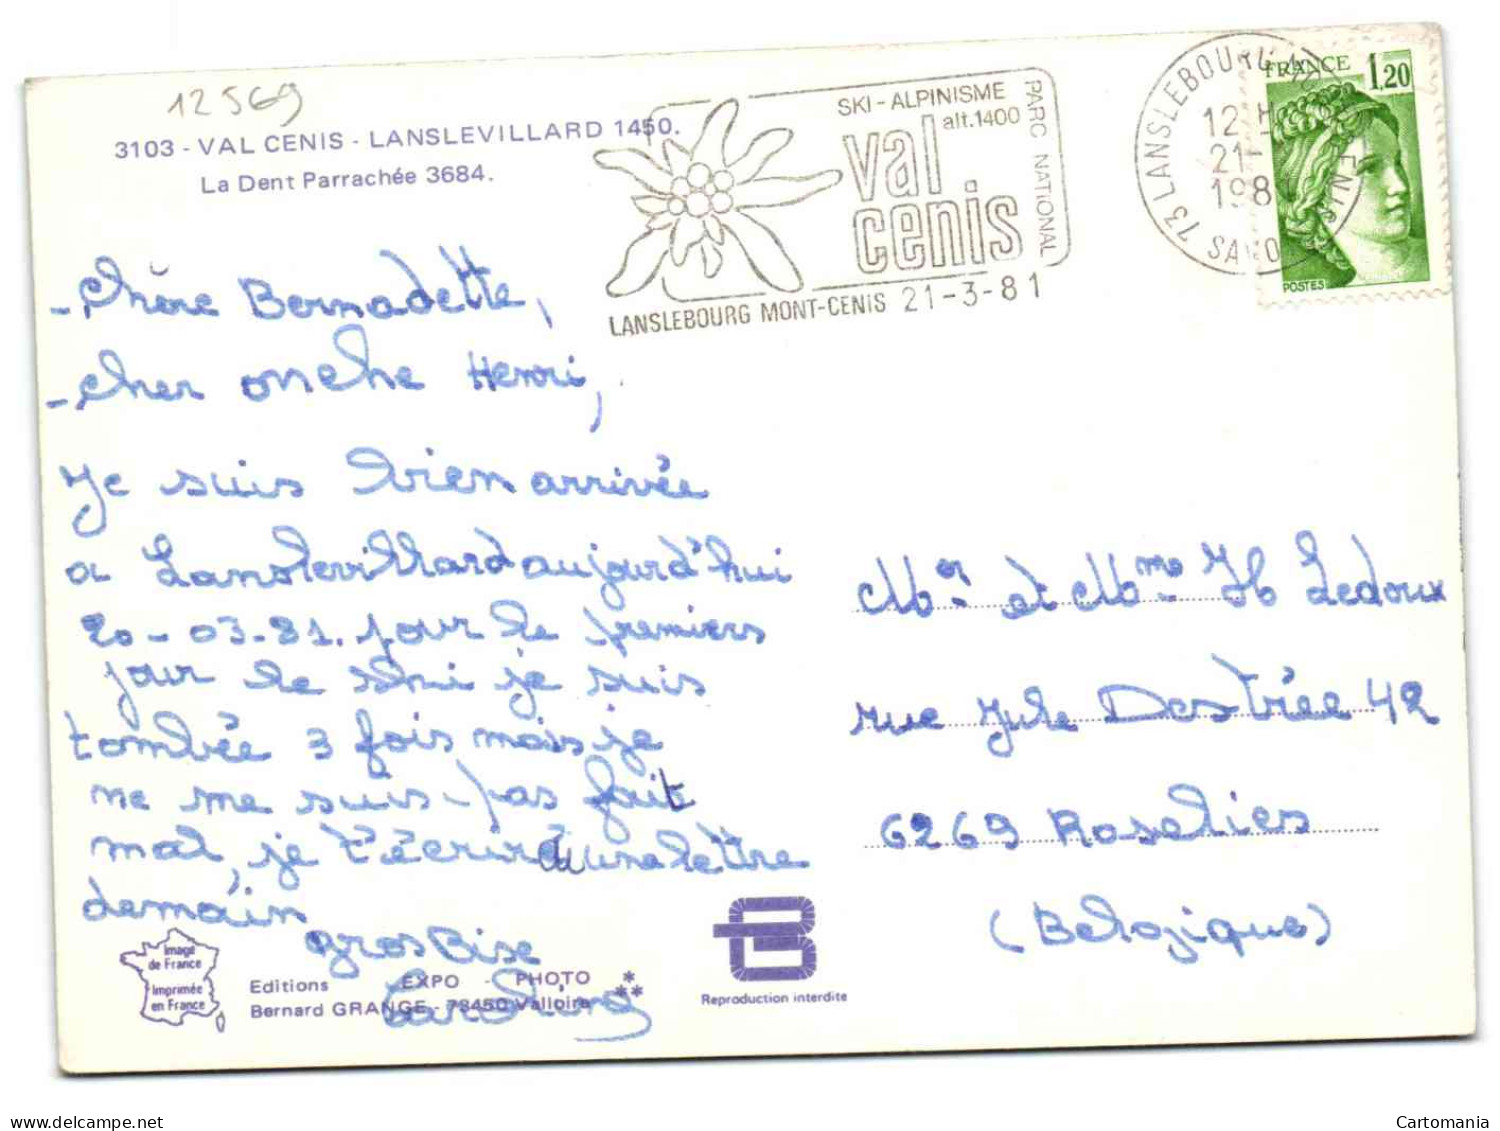 12569
3103 - VAL CENIS - LANSLEVILLARD 1450.
La Dent Parrachée 3684.
SKI - ALPINISME
alt.1400
val
cenis
PARC NATIONAL
LANSLEBOURG MONT-CENIS 21-3-81
73 LANSLEBOURG
12 H
21-
198
SAVO
FRANCE 1,20
POSTES
- Chère Bernadette,
- cher onche Henri,
Je suis bien arrivée
a Lanslevillard aujourd'hui
20-03-81. pour le premiers
jour le skui je suis
tombée 3 fois mais je
ne me suis pas fait
mal, je t'écriré une lettre
demain
gros Bise
Mor. et Mme. H Ledoux
rue Jule Destrée 42
6269 Roselies
(Belgique)
Image
de France
Imprimée
en France
Editions EXPO - PHOTO
Bernard GRANGE - 73450 Valloire
Reproduction interdite
Cartomania